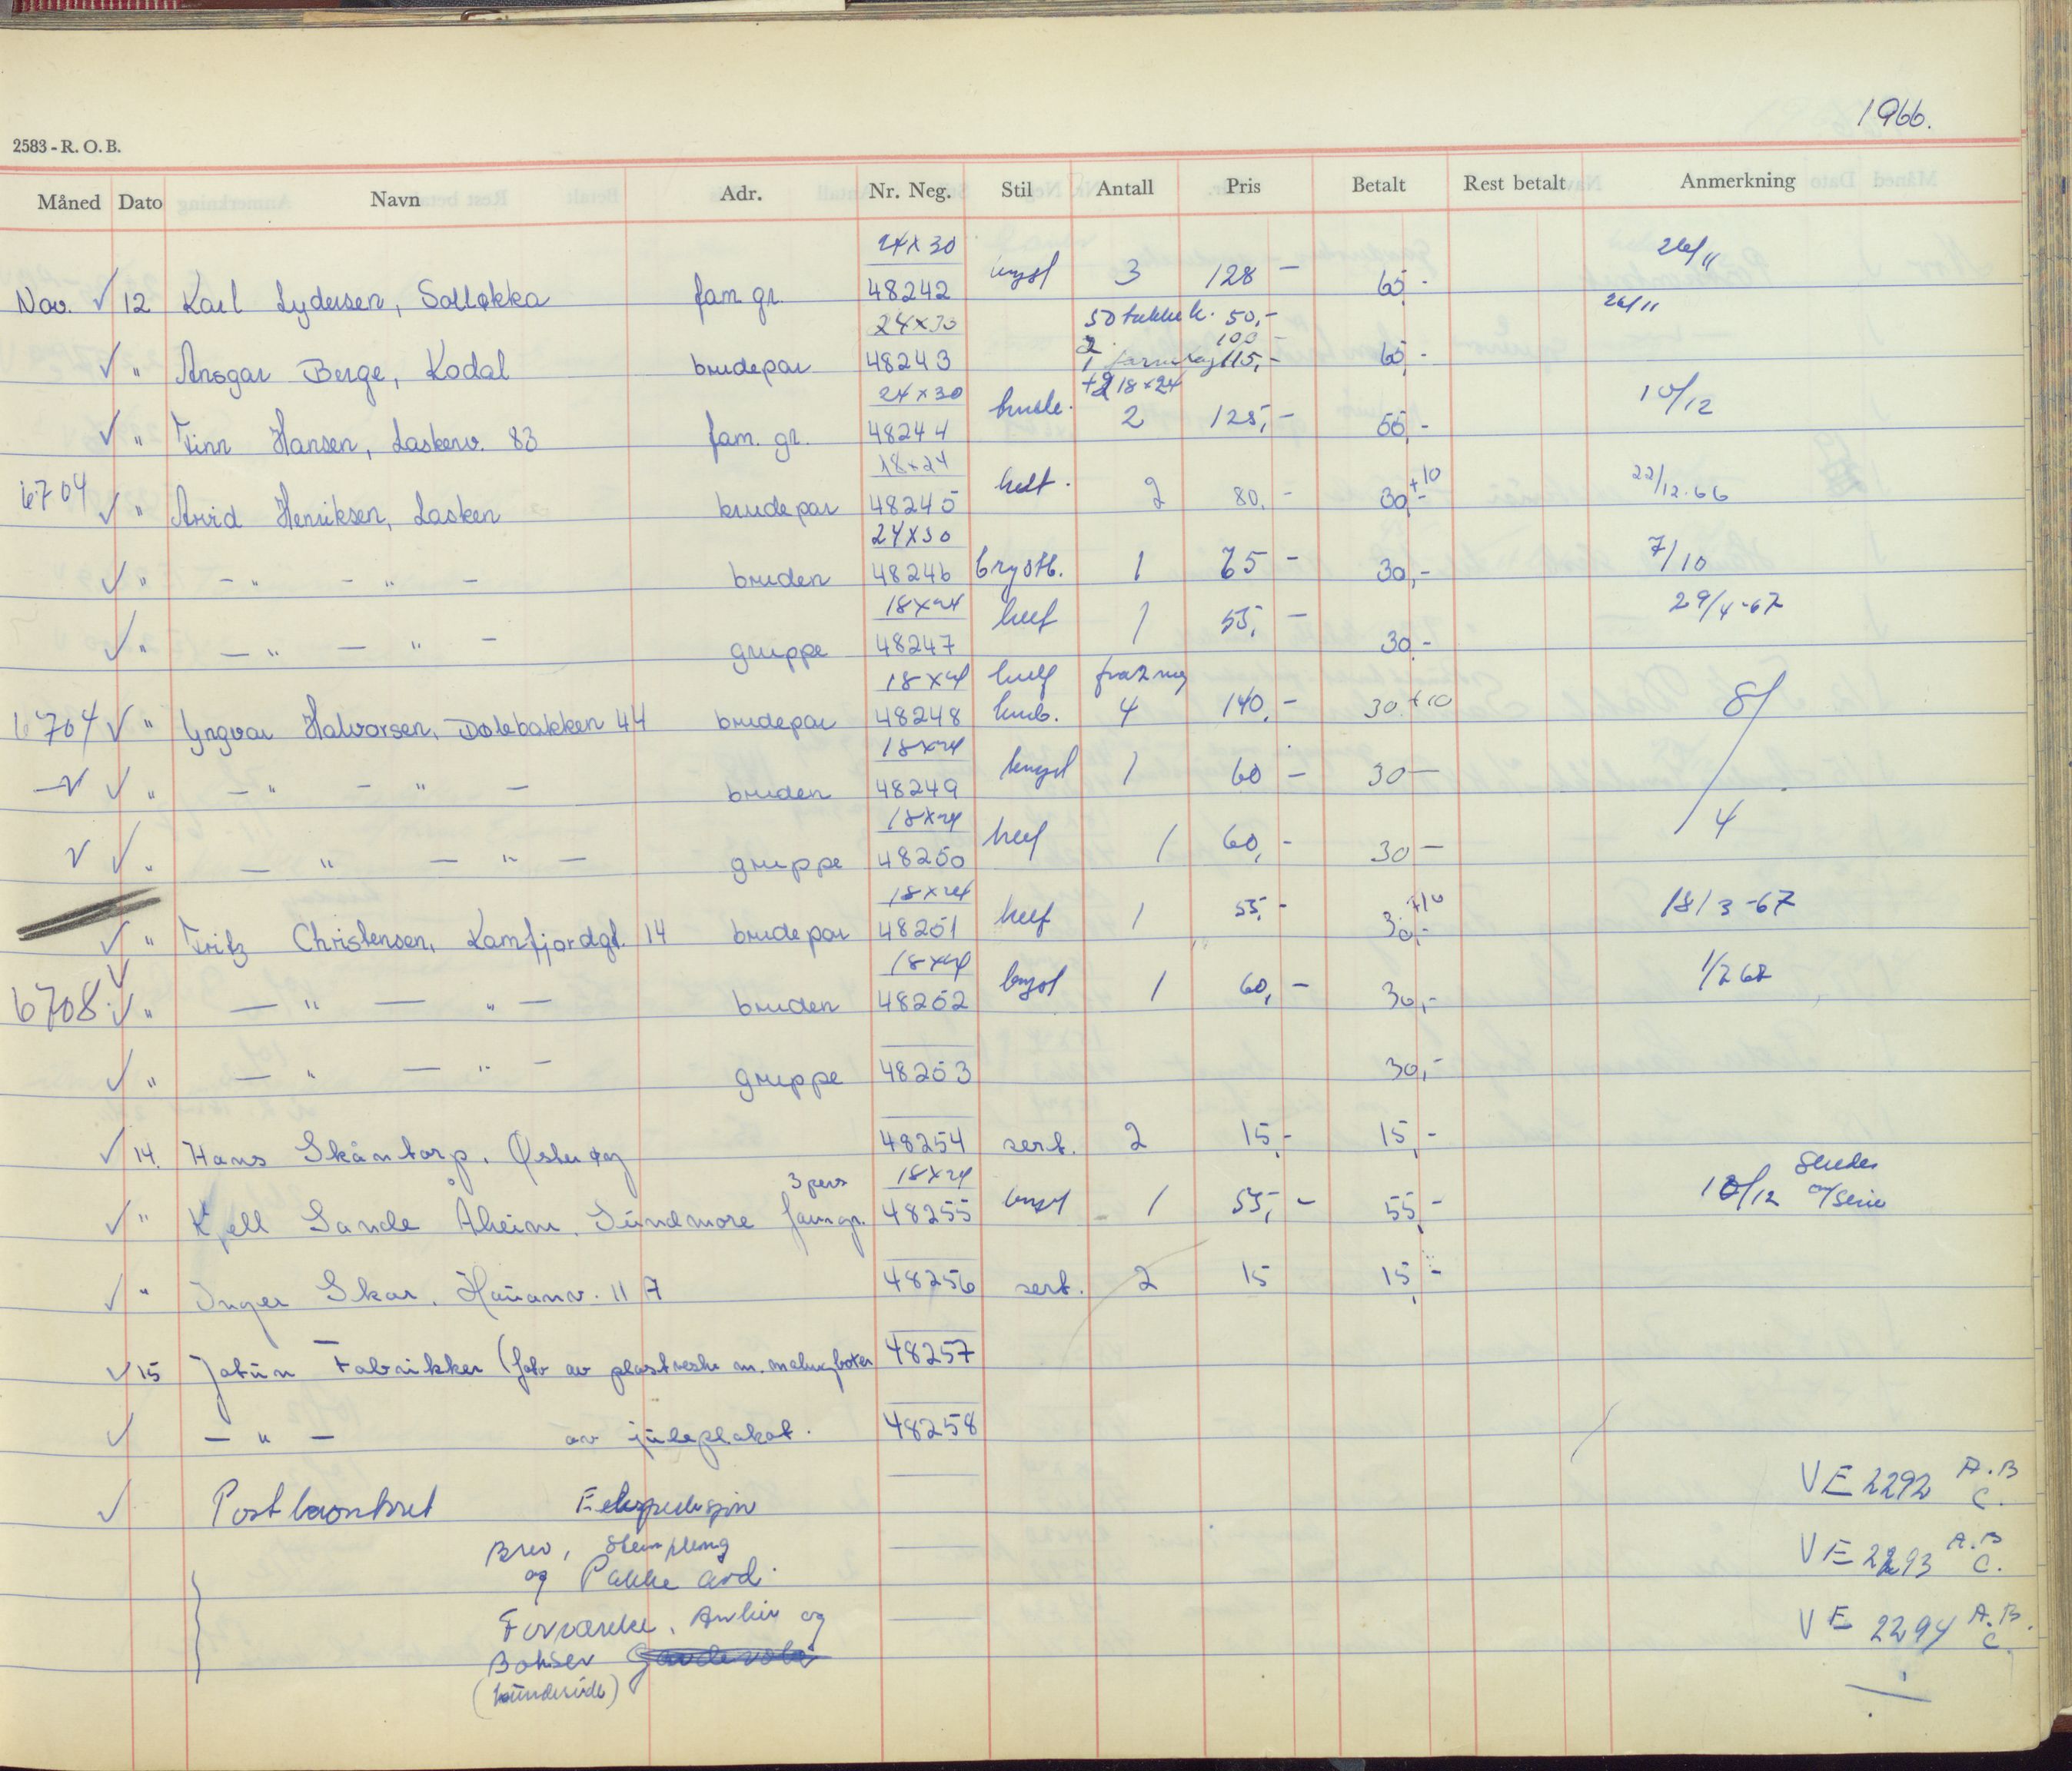 1966.
2583 - R. O. B.
Måned Dato Navn Adr. Nr. Neg. Stil Antall Pris Betalt Rest betalt Anmerkning
24x30
Nov. ✓ 12 Karl Lydersen, Solløkka fam. gr. 48242 3 128 - 65,- 26/11
24x30 50 takkek. 50,- 26/11
2 100
✓ " Ansgar Berge, Kodal brudepar 48243 1 115,- 65,-
24x30 +2 18x24
✓ " Finn Hansen, Laskenv. 83 fam. gr. 48244 2 125,- 55,- 10/12
18x24
6704 ✓ " Arvid Henriksen, Lasken brudepar 48245 2 80,- 30,- +10 22/12.66
24x30
✓ " - " - " - bruden 48246 brystb. 1 75 - 30,- 7/10
18x24
✓ " - " - " - gruppe 48247 1 55,- 30,- 29/4-67
18x24
6704 ✓ " Yngvar Halvorsen, Dølebakken 44 brudepar 48248 4 140,- 30 +10 8/4
18x24
✓ ✓ " - " - " - bruden 48249 1 60 - 30 -
18x24
✓ ✓ " - " - " - gruppe 48250 1 60,- 30 -
18x24
✓ " Fritz Christensen, Kamfjordgt. 14 brudepar 48251 1 55,- 30,- +10 18/3-67
18x24
6708 ✓ " - " - " - bruden 48252 1 60,- 30,- 1/2 67
✓ " - " - " - gruppe 48253 30,-
✓ 14. Hans Skåntorp, Østerøy 48254 sert. 2 15,- 15,-
3 pers 18x24
✓ " Kjell Sande Åheim, Sündmøre famgr. 48255 1 55,- 55,- 10/12 Sendes
✓ " Inger Skar, Hauanv. 11 A 48256 sert. 2 15 15,-
✓ 15 Jotun Fabrikker (fotv av plastveske m. malingbokser 48257
✓ - " - av juleplakat. 48258
✓ Postkontoret Ekspedisjon VE 2292 A.B C.
Brev, Stempling VE 2293 A.B C.
og Pakke avd.
Forværelse, Arkiv og VE 2294 A.B. C.
Bokser
(kundeside)